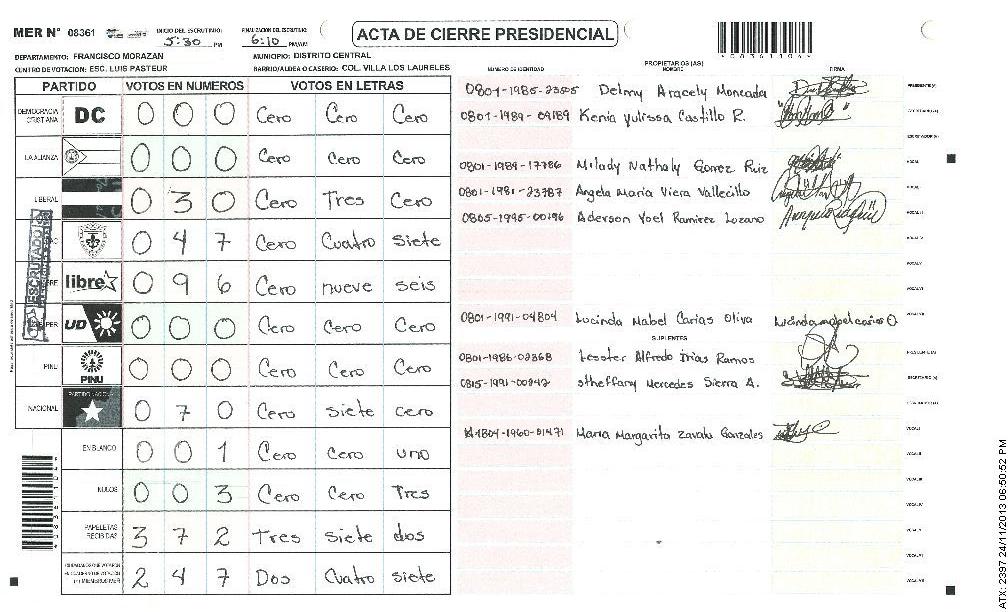 MER N° 08361 INICIO DEL ESCRUTINIO: 5:30 PM FINALIZACION DEL ESCRUTINIO: 6:10 PM/AM ACTA DE CIERRE PRESIDENCIAL
DEPARTAMENTO: FRANCISCO MORAZAN MUNICIPIO: DISTRITO CENTRAL
CENTRO DE VOTACION: ESC. LUIS PASTEUR BARRIO/ALDEA O CASERIO: COL. VILLA LOS LAURELES
PARTIDO VOTOS EN NUMEROS VOTOS EN LETRAS
DEMOCRACIA CRISTIANA DC 0 0 0 Cero Cero Cero
LA ALIANZA 0 0 0 Cero Cero Cero
LIBERAL 0 3 0 Cero Tres Cero
0 4 7 Cero Cuatro Siete
libre 0 9 6 Cero nueve seis
UD 0 0 0 Cero Cero Cero
PINU PINU 0 0 0 Cero Cero Cero
NACIONAL 0 7 0 Cero siete cero
EN BLANCO 0 0 1 Cero Cero uno
NULOS 0 0 3 Cero Cero Tres
PAPELETAS RECIBIDAS 3 7 2 Tres siete dos
2 4 7 Dos Cuatro siete
ESCRUTADO
NUMERO DE IDENTIDAD PROPIETARIOS (AS) NOMBRE FIRMA
0801-1985-23505 Delmy Aracely Moncada PRESIDENTE(A)
0801-1989-09189 Kenia Yulissa Castillo R. SECRETARIO(A)
0801-1989-17786 Milady Nathaly Gomez Ruiz
0801-1981-23787 Angela Maria Viera Vallecillo
0805-1995-00196 Aderson Yoel Ramirez Lozano
0801-1991-04804 Lucinda Mabel Carias Oliva Lucinda mabel carias O
SUPLENTES
0801-1986-02368 Lesster Alfredo Irias Ramos
0815-1991-00242 stheffany Mercedes Sierra A.
1804-1960-01471 Maria Margarita Zavala Gonzales
ATX: 2397 24/11/2013 06:50:52 PM